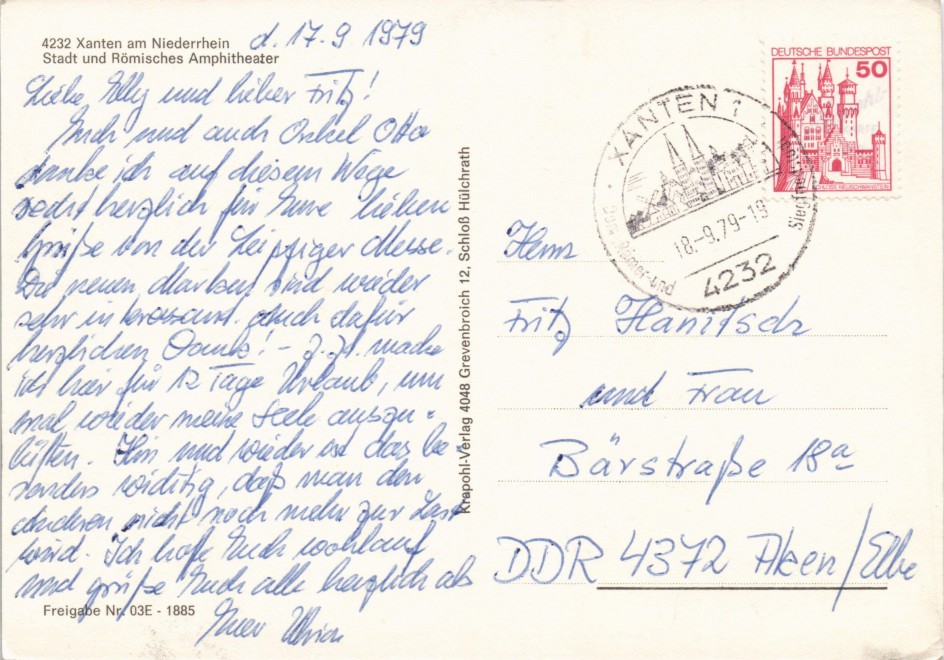 4232 Xanten am Niederrhein
Stadt und Römisches Amphitheater
d. 17.9 1979
Liebe Elly und lieber Fritz!
Euch und auch Onkel Otto
danke ich auf diesem Wege
recht herzlich für Eure lieben
Grüße von der Leipziger Messe.
Die neuen Marken sind wieder
sehr interessant. Auch dafür
herzlichen Dank! – Z. Zt. mache
ich hier für 12 Tage Urlaub, um
mal wieder meine Seele auszu-
lüften. Hin und wieder ist das be-
sonders wichtig, daß man den
anderen nicht noch mehr zur Last
wird. Ich hoffe Euch wohlauf
und grüße Euch alle herzlich als
Euer
Freigabe Nr. 03E - 1885
Krapohl-Verlag 4048 Grevenbroich 12, Schloß Hülchrath
XANTEN 1
Die Römer- und
18.-9.79-18
4232
DEUTSCHE BUNDESPOST
50
Herrn
Fritz
und Frau
Bärstraße 18a
DDR 4372 Aken/Elbe